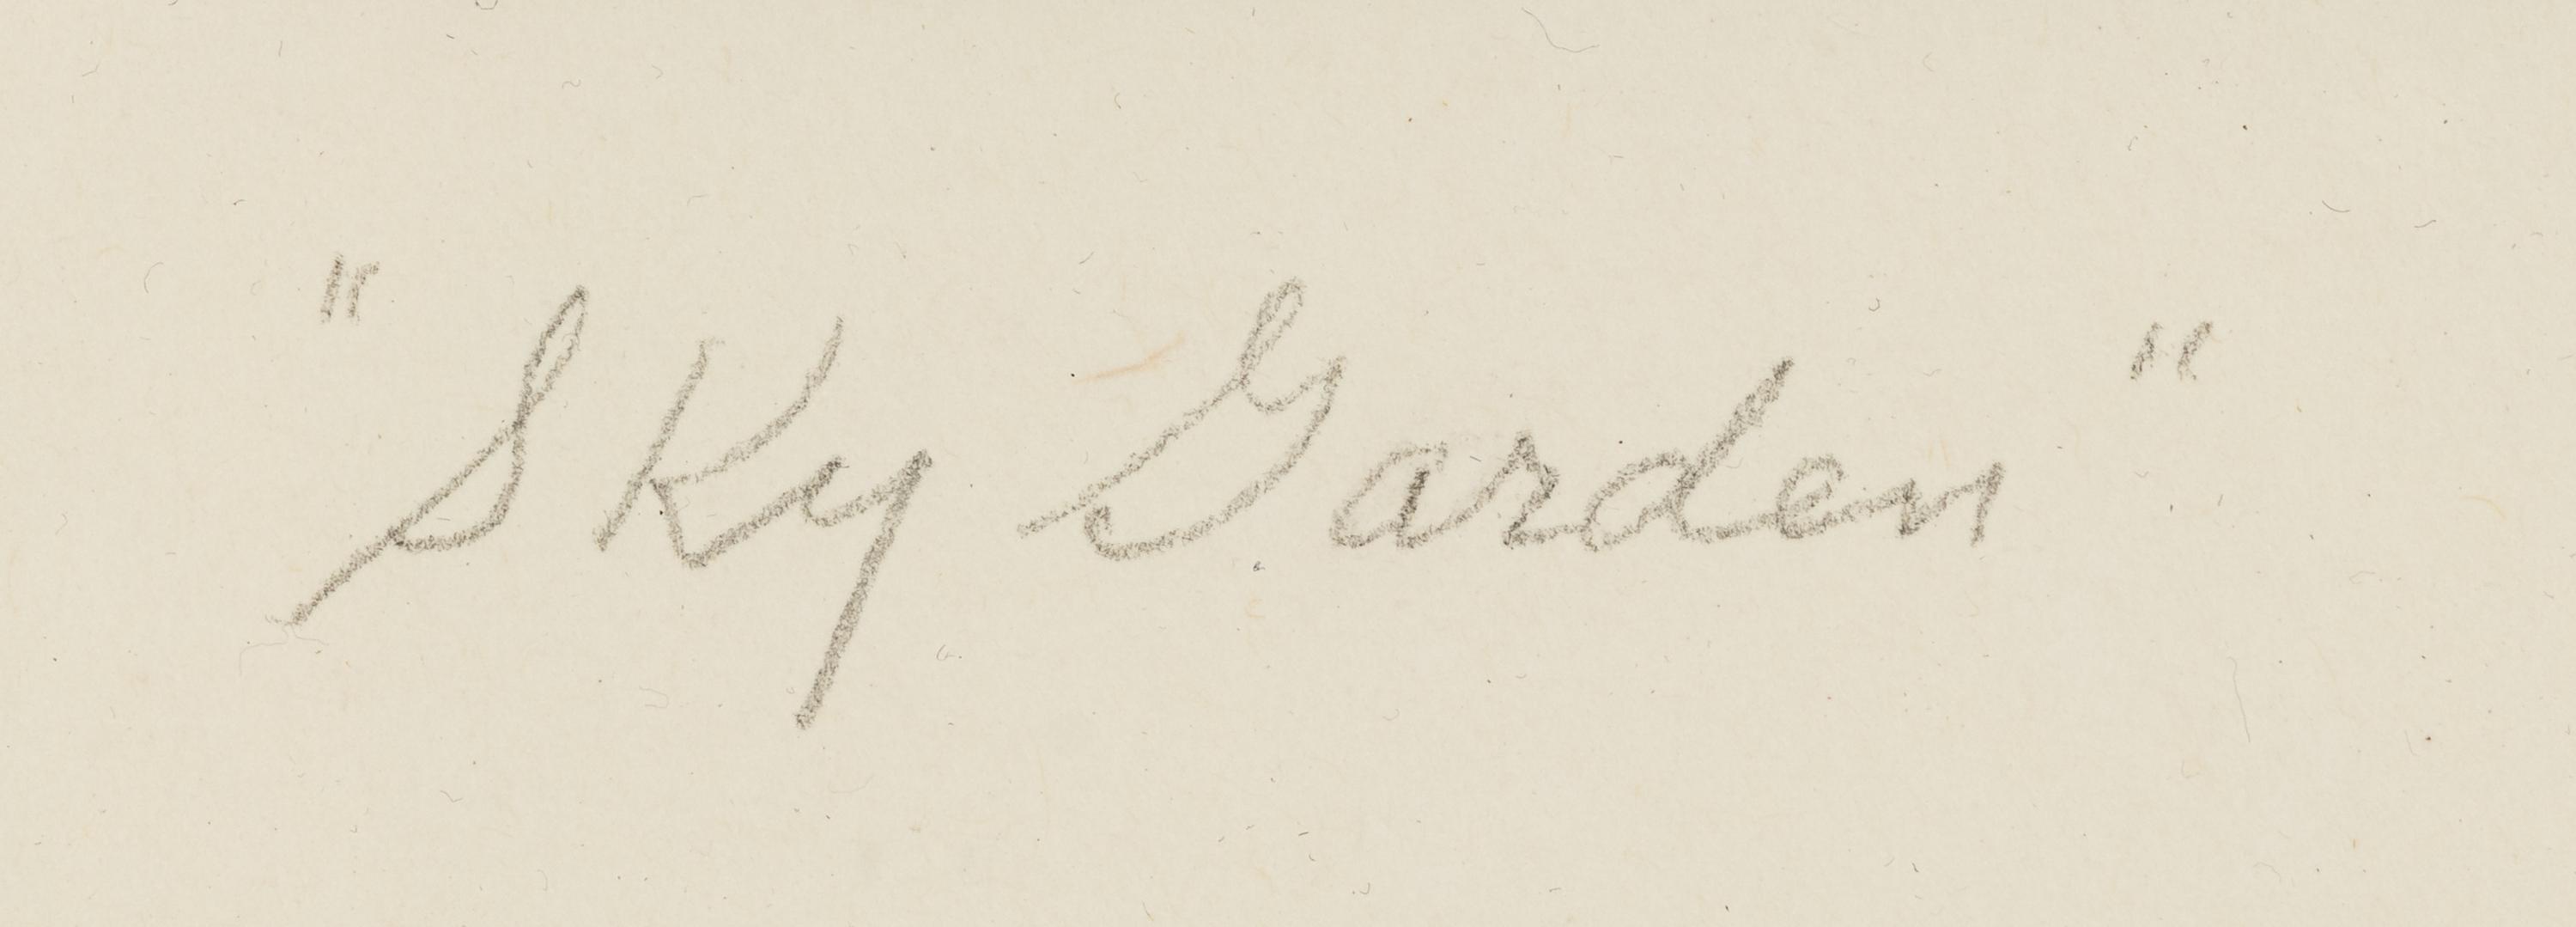 "Sky Garden"